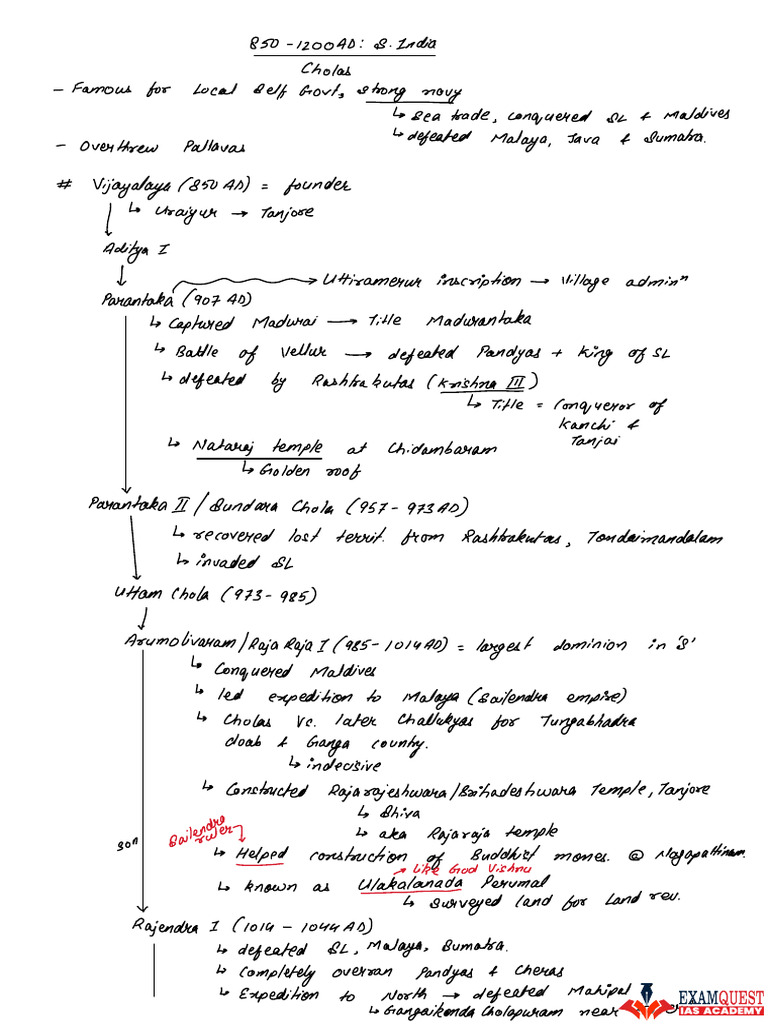 850 - 1200 AD: S. India
Cholas
- Famous for Local Self Govt, strong navy
↳ Sea trade, conquered SL & Maldives
↳ defeated Malaya, Java & Sumatra.
- Overthrew Pallavas
# Vijayalaya (850 AD) = founder
↳ Uraiyur → Tanjore
Aditya I
→ Uttiramerur inscription → Village adminⁿ
Parantaka (907 AD)
↳ Captured Madurai → Title Madurantaka
↳ Battle of Vellur → defeated Pandyas + King of SL
↳ defeated by Rashtrakutas (Krishna III)
↳ Title = Conqueror of
Kanchi &
Tanjai
↳ Nataraj temple at Chidambaram
↳ Golden roof
Parantaka II / Sundara Chola (957 - 973 AD)
↳ recovered lost territ. from Rashtrakutas, Tondaimandalam
↳ invaded SL
Uttam Chola (973 - 985)
Arumolivaram / Raja Raja I (985 - 1014 AD) = largest dominion in 'S'
↳ Conquered Maldives
↳ led expedition to Malaya (Sailendra empire)
↳ Cholas Vs. later Challukyas for Tungabhadra
doab & Ganga county.
↳ indecisive
↳ Constructed Rajarajeshwara/Brihadeshwara Temple, Tanjore
↳ Shiva
↳ aka Rajaraja temple
son
Sailendra
ruler
↳ Helped construction of Buddhist mones. @ Nagapattinam.
→ like God Vishnu
↳ known as Ulakalanada Perumal
↳ Surveyed land for Land rev.
Rajendra I (1014 - 1044 AD)
↳ defeated SL, Malaya, Sumatra.
↳ Completely overran Pandyas & Cheras
↳ Expedition to North → defeated Mahipal
↳ Gangaikonda Cholapuram near
EXAMQUEST
IAS ACADEMY